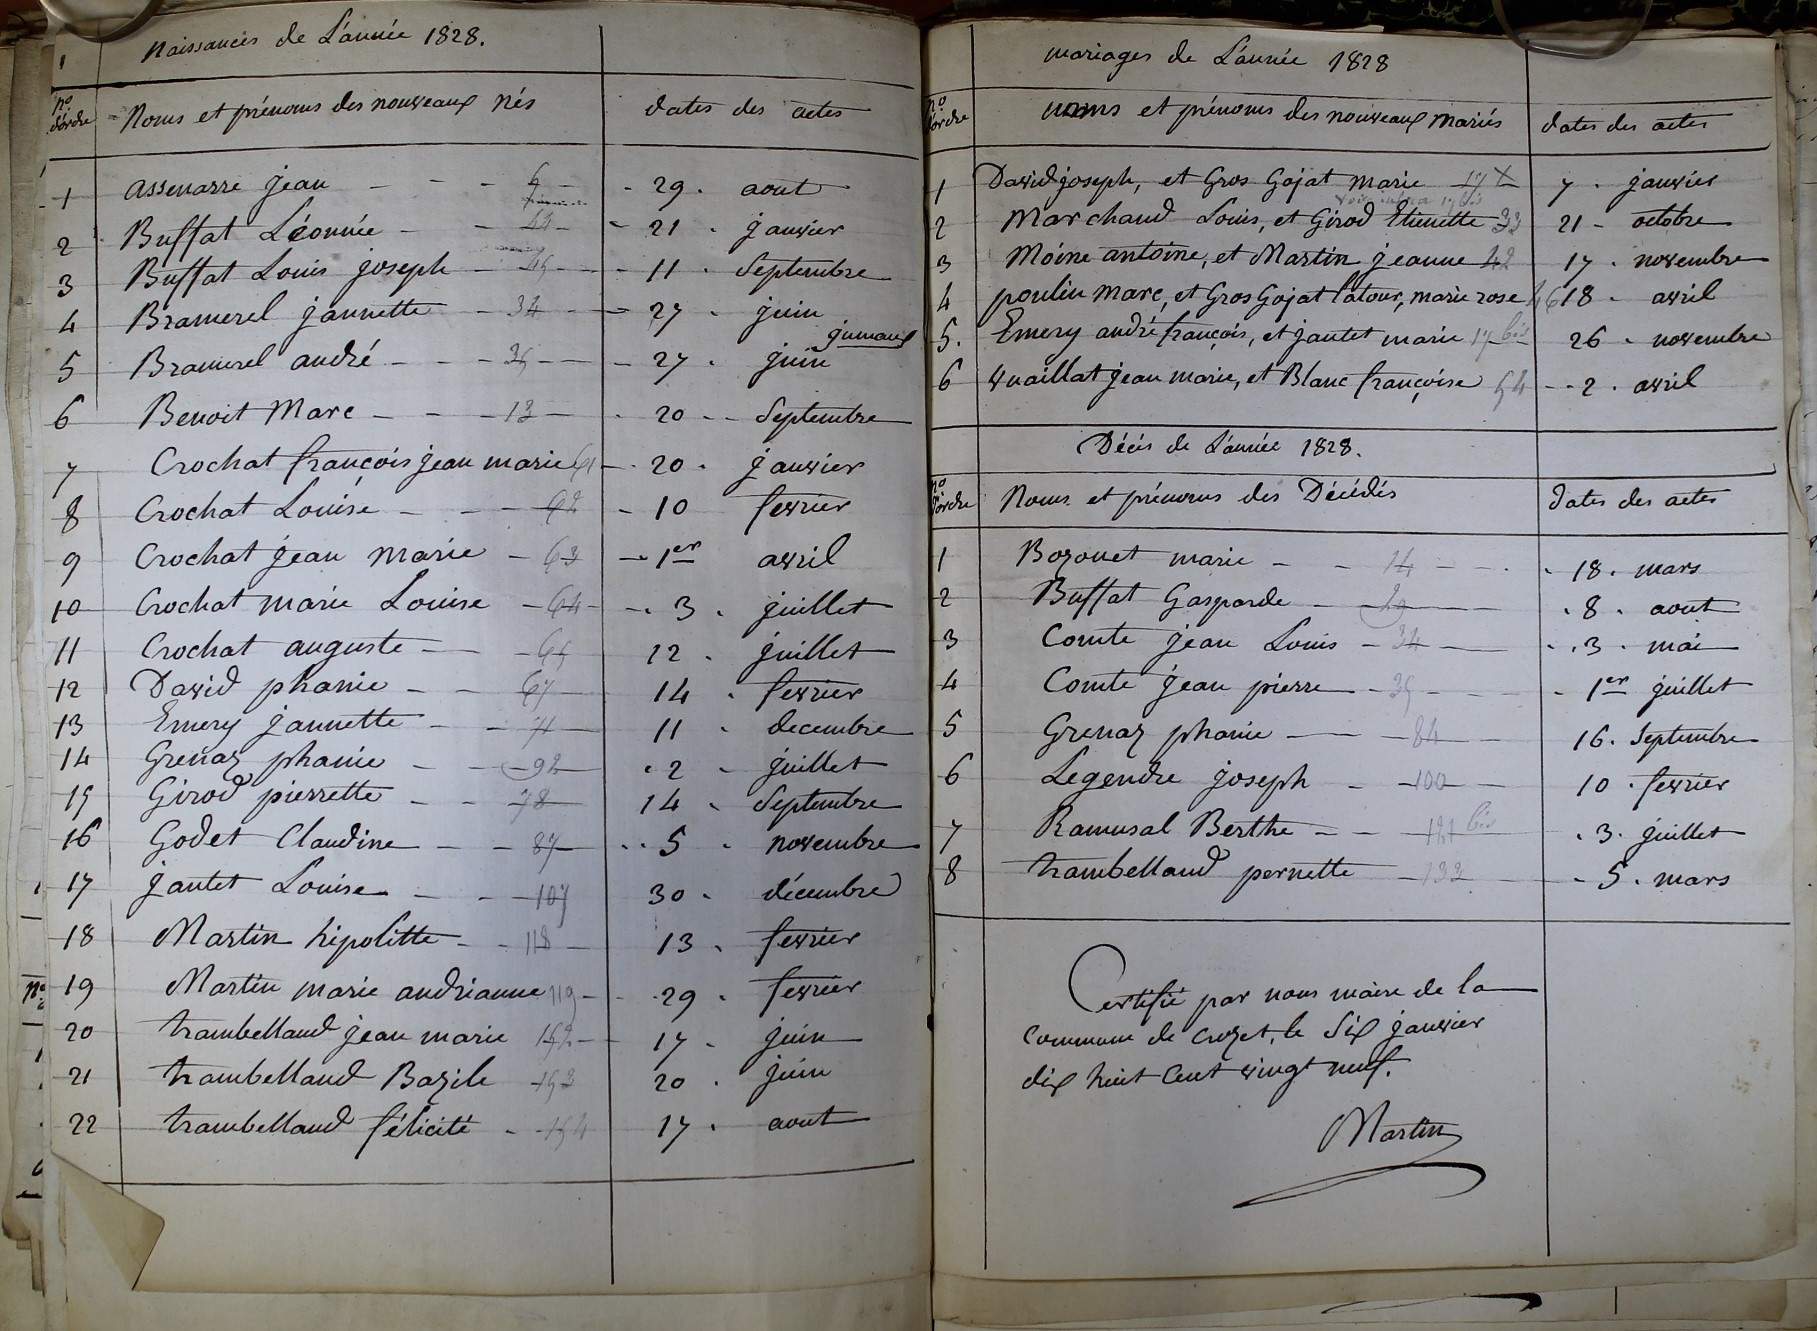 1 Naissances de L'année 1828.
no d'ordre Noms et prénoms des nouveaux Nés dates des actes
1 Assenarre jean 29. aout
2 Buffat Léonnie 21. janvier
3 Buffat Louis joseph 11. Septembre
4 Bramerel jannette 34 27. juin
jumeaux
5 Bramerel andré 35 27. juin
6 Benoit Marc 13 20 Septembre
7 Crochat françois jean marie 61 20. janvier
8 Crochat Louise 62 10 fevrier
9 Crochat jean Marie 63 1er avril
10 Crochat marie Louise 64 3. juillet
11 Crochat auguste 65 12. juillet
12 David phanie 67 14. fevrier
13 Emery jannette 71 11. decembre
14 Grenaz phanie 92 2 juillet
15 Girod pierrette 78 14. Septembre
16 Godet Claudine 87 5. novembre
17 jantet Louise 107 30. décembre
18 Martin hipolitte 118 13. fevrier
19 Martin marie andrianne 119 29. fevrier
20 trambelland jean marie 152 17. juin
21 trambelland Bazile 153 20. juin
22 trambelland félicité 154 17. aout
mariages de L'année 1828
no d'ordre noms et prénoms des nouveaux Mariés dates des actes
1 David joseph, et Gros Gojat Marie 17 X 7. janvier
2 Marchand Louis, et Girod Etiennette 33 21 octobre
3 Moine antoine, et Martin jeanne 42 17. novembre
4 poulin marc, et Gros Gojat latour, marie rose 46 18. avril
5. Emery andré françois, et jantet marie 17 bis 26. novembre
6 Vuaillat jean marie, et Blanc françoise 54 2. avril
Décès de L'année 1828.
no d'ordre Noms et prénoms des Décédés dates des actes
1 Bozonet marie 14 18. mars
2 Buffat Gasparde 20 8. aout
3 Comte jean Louis 34 3. mai
4 Comte jean pierre 35 1er juillet
5 Grenaz phanie 84 16. Septembre
6 Legendre joseph 100 10. fevrier
7 Ramusal Berthe 121 bis 3. juillet
8 trambelland pernette 133 5. mars
Certifié par nous maire de la
commune de crozet, le Six janvier
dix huit cent vingt neuf.
Martin